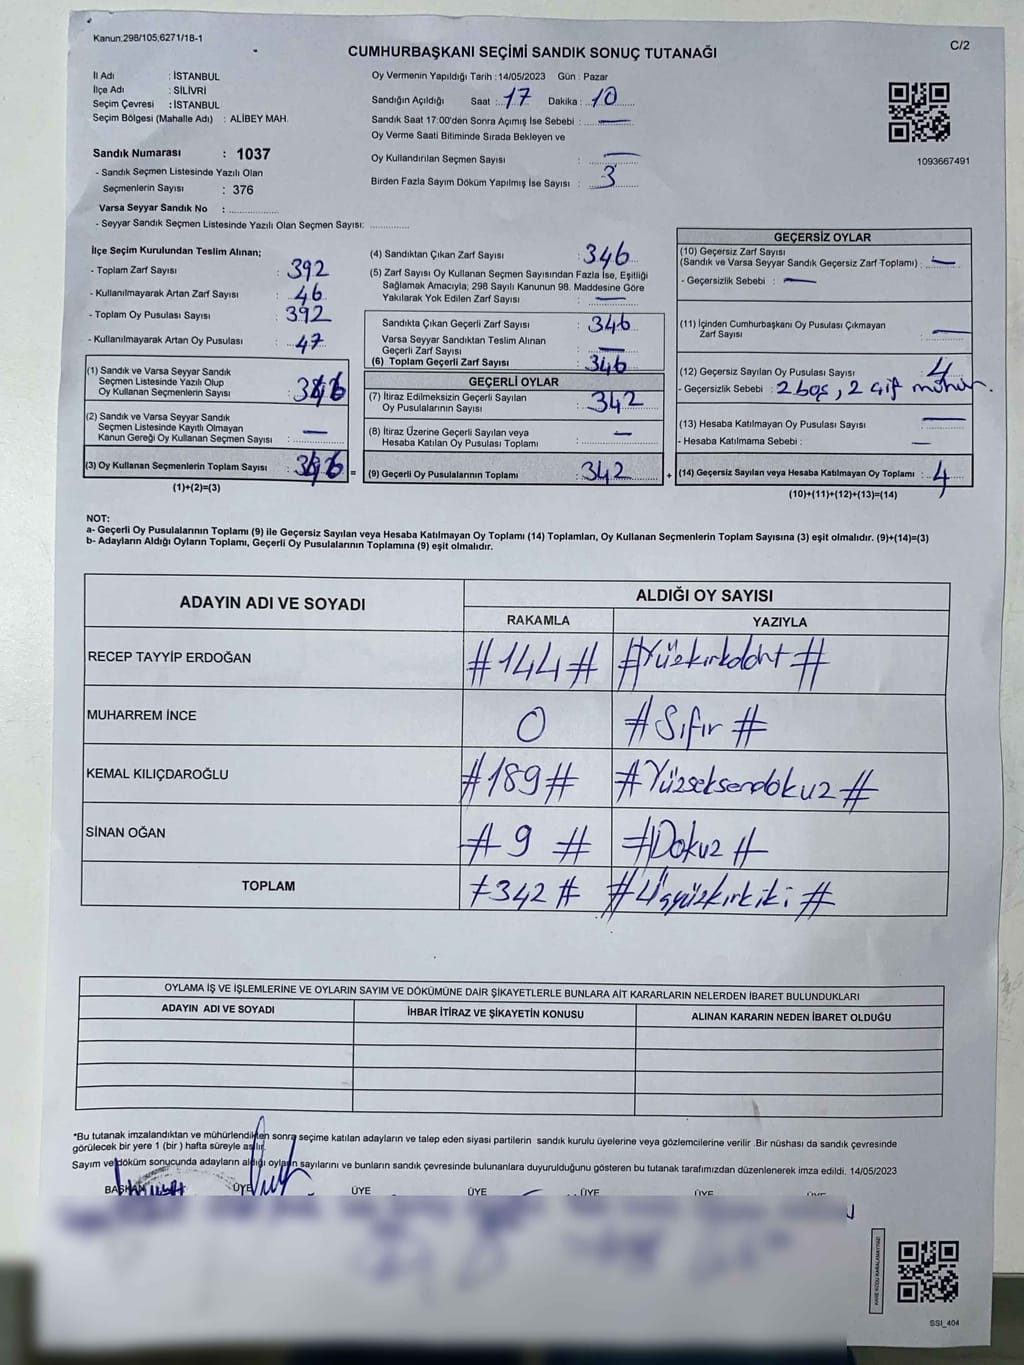 Kanun.298/105,6271/1B-1
C/2
CUMHURBAŞKANI SEÇİMİ SANDIK SONUÇ TUTANAĞI
İl Adı : İSTANBUL
İlçe Adı : SİLİVRİ
Seçim Çevresi : İSTANBUL
Seçim Bölgesi (Mahalle Adı) : ALİBEY MAH.
Sandık Numarası : 1037
- Sandık Seçmen Listesinde Yazılı Olan
Seçmenlerin Sayısı : 376
Varsa Seyyar Sandık No : ................
- Seyyar Sandık Seçmen Listesinde Yazılı Olan Seçmen Sayısı: ............
Oy Vermenin Yapıldığı Tarih : 14/05/2023 Gün : Pazar
Sandığın Açıldığı Saat : 17 Dakika : 10
Sandık Saat 17:00'den Sonra Açımış İse Sebebi : —
Oy Verme Saati Bitiminde Sırada Bekleyen ve
Oy Kullandırılan Seçmen Sayısı : —
Birden Fazla Sayım Döküm Yapılmış İse Sayısı : 3
1093667491
İlçe Seçim Kurulundan Teslim Alınan;
- Toplam Zarf Sayısı : 392
- Kullanılmayarak Artan Zarf Sayısı : 46
- Toplam Oy Pusulası Sayısı : 392
- Kullanılmayarak Artan Oy Pusulası : 47
(1) Sandık ve Varsa Seyyar Sandık
Seçmen Listesinde Yazılı Olup
Oy Kullanan Seçmenlerin Sayısı :
(2) Sandık ve Varsa Seyyar Sandık
Seçmen Listesinde Kayıtlı Olmayan
Kanun Gereği Oy Kullanan Seçmen Sayısı : —
(3) Oy Kullanan Seçmenlerin Toplam Sayısı :
(1)+(2)=(3)
(4) Sandıktan Çıkan Zarf Sayısı : 346
(5) Zarf Sayısı Oy Kullanan Seçmen Sayısından Fazla İse, Eşitliği
Sağlamak Amacıyla; 298 Sayılı Kanunun 98. Maddesine Göre
Yakılarak Yok Edilen Zarf Sayısı : —
Sandıkta Çıkan Geçerli Zarf Sayısı : 346
Varsa Seyyar Sandıktan Teslim Alınan
Geçerli Zarf Sayısı : —
(6) Toplam Geçerli Zarf Sayısı : 346
GEÇERLİ OYLAR
(7) İtiraz Edilmeksizin Geçerli Sayılan
Oy Pusulalarının Sayısı : 342
(8) İtiraz Üzerine Geçerli Sayılan veya
Hesaba Katılan Oy Pusulası Toplamı : —
= (9) Geçerli Oy Pusulalarının Toplamı : 342 +
GEÇERSİZ OYLAR
(10) Geçersiz Zarf Sayısı
(Sandık ve Varsa Seyyar Sandık Geçersiz Zarf Toplamı) : —
- Geçersizlik Sebebi : —
(11) İçinden Cumhurbaşkanı Oy Pusulası Çıkmayan
Zarf Sayısı : —
(12) Geçersiz Sayılan Oy Pusulası Sayısı : 4
- Geçersizlik Sebebi : 2 boş, 2 çift mühür.
(13) Hesaba Katılmayan Oy Pusulası Sayısı : —
- Hesaba Katılmama Sebebi : —
(14) Geçersiz Sayılan veya Hesaba Katılmayan Oy Toplamı : 4
(10)+(11)+(12)+(13)=(14)
NOT:
a- Geçerli Oy Pusulalarının Toplamı (9) ile Geçersiz Sayılan veya Hesaba Katılmayan Oy Toplamı (14) Toplamları, Oy Kullanan Seçmenlerin Toplam Sayısına (3) eşit olmalıdır. (9)+(14)=(3)
b- Adayların Aldığı Oyların Toplamı, Geçerli Oy Pusulalarının Toplamına (9) eşit olmalıdır.
ADAYIN ADI VE SOYADI
ALDIĞI OY SAYISI
RAKAMLA YAZIYLA
RECEP TAYYİP ERDOĞAN #144# #Yüzkırkdört#
MUHARREM İNCE 0 #Sıfır#
KEMAL KILIÇDAROĞLU #189# #Yüzseksendokuz#
SİNAN OĞAN #9# #Dokuz#
TOPLAM #342# #Üçyüzkırkiki#
OYLAMA İŞ VE İŞLEMLERİNE VE OYLARIN SAYIM VE DÖKÜMÜNE DAİR ŞİKAYETLERLE BUNLARA AİT KARARLARIN NELERDEN İBARET BULUNDUKLARI
ADAYIN ADI VE SOYADI İHBAR İTİRAZ VE ŞİKAYETİN KONUSU ALINAN KARARIN NEDEN İBARET OLDUĞU
*Bu tutanak imzalandıktan ve mühürlendikten sonra seçime katılan adayların ve talep eden siyasi partilerin sandık kurulu üyelerine veya gözlemcilerine verilir .Bir nüshası da sandık çevresinde
görülecek bir yere 1 (bir ) hafta süreyle asılır.
Sayım ve döküm sonucunda adayların aldığı oyların sayılarını ve bunların sandık çevresinde bulunanlara duyurulduğunu gösteren bu tutanak tarafımızdan düzenlenerek imza edildi. 14/05/2023
BAŞKAN ÜYE ÜYE ÜYE ÜYE ÜYE ÜYE
KARE KODU KARALAMAYINIZ!
SSI_404